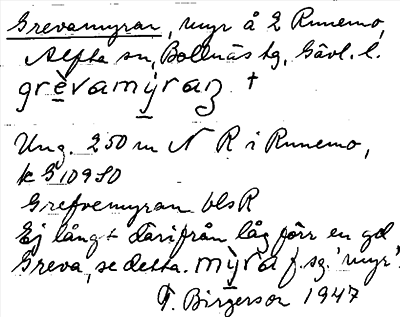 Grevamyran, myr å 2 Runemo,
Alfta sn, Bollnäs tg, Gävl. l.
grèvamýraꞃ †
Ung. 250 m N R i Runemo,
k G 10980
Grefvemyran blsR
Ej långt därifrån låg förr en gd
Greva, se detta. mỳra f. sg. 'myr'.
T. Birgerson 1947